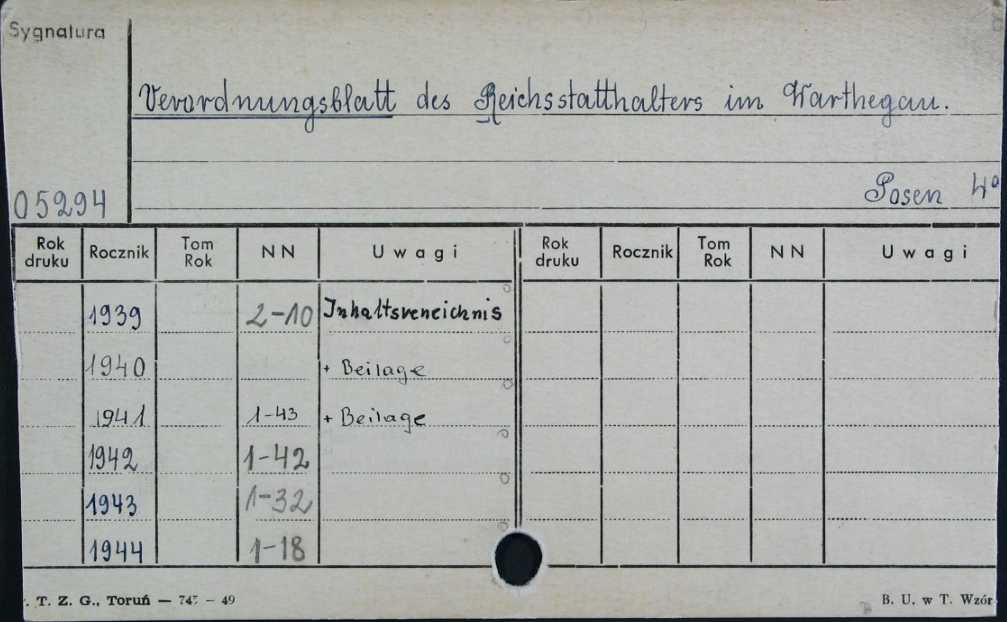 Sygnatura
Verordnungsblatt des Reichsstatthalters im Warthegau.
05294
Posen 4°
Rok druku Rocznik Tom Rok NN Uwagi Rok druku Rocznik Tom Rok NN Uwagi
1939 2-10 Inhaltsverzeichnis
1940 + Beilage
1941 1-43 + Beilage
1942 1-42
1943 1-32
1944 1-18
T. Z. G., Toruń — 49
B. U. w T. Wzór